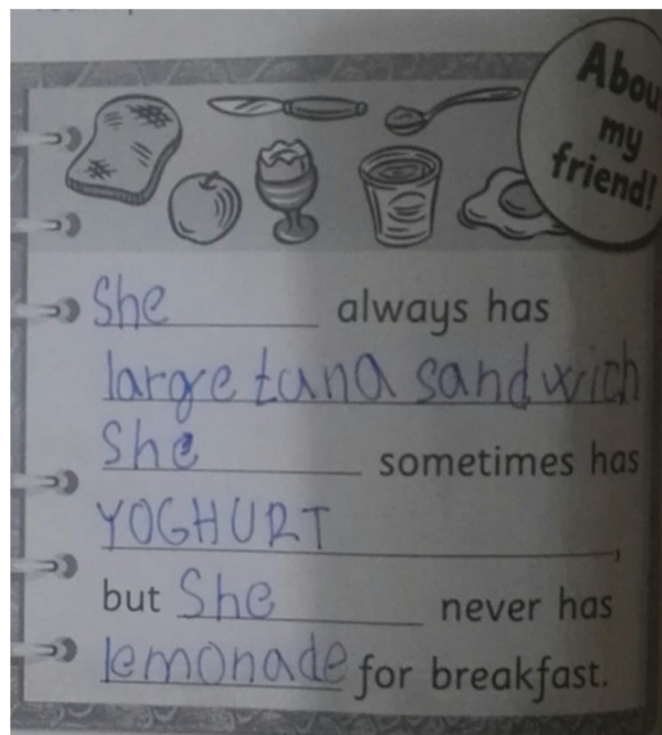 Abou
my
friend!
She always has
large tuna sandwich
She sometimes has
YOGHURT,
but She never has
lemonade for breakfast.